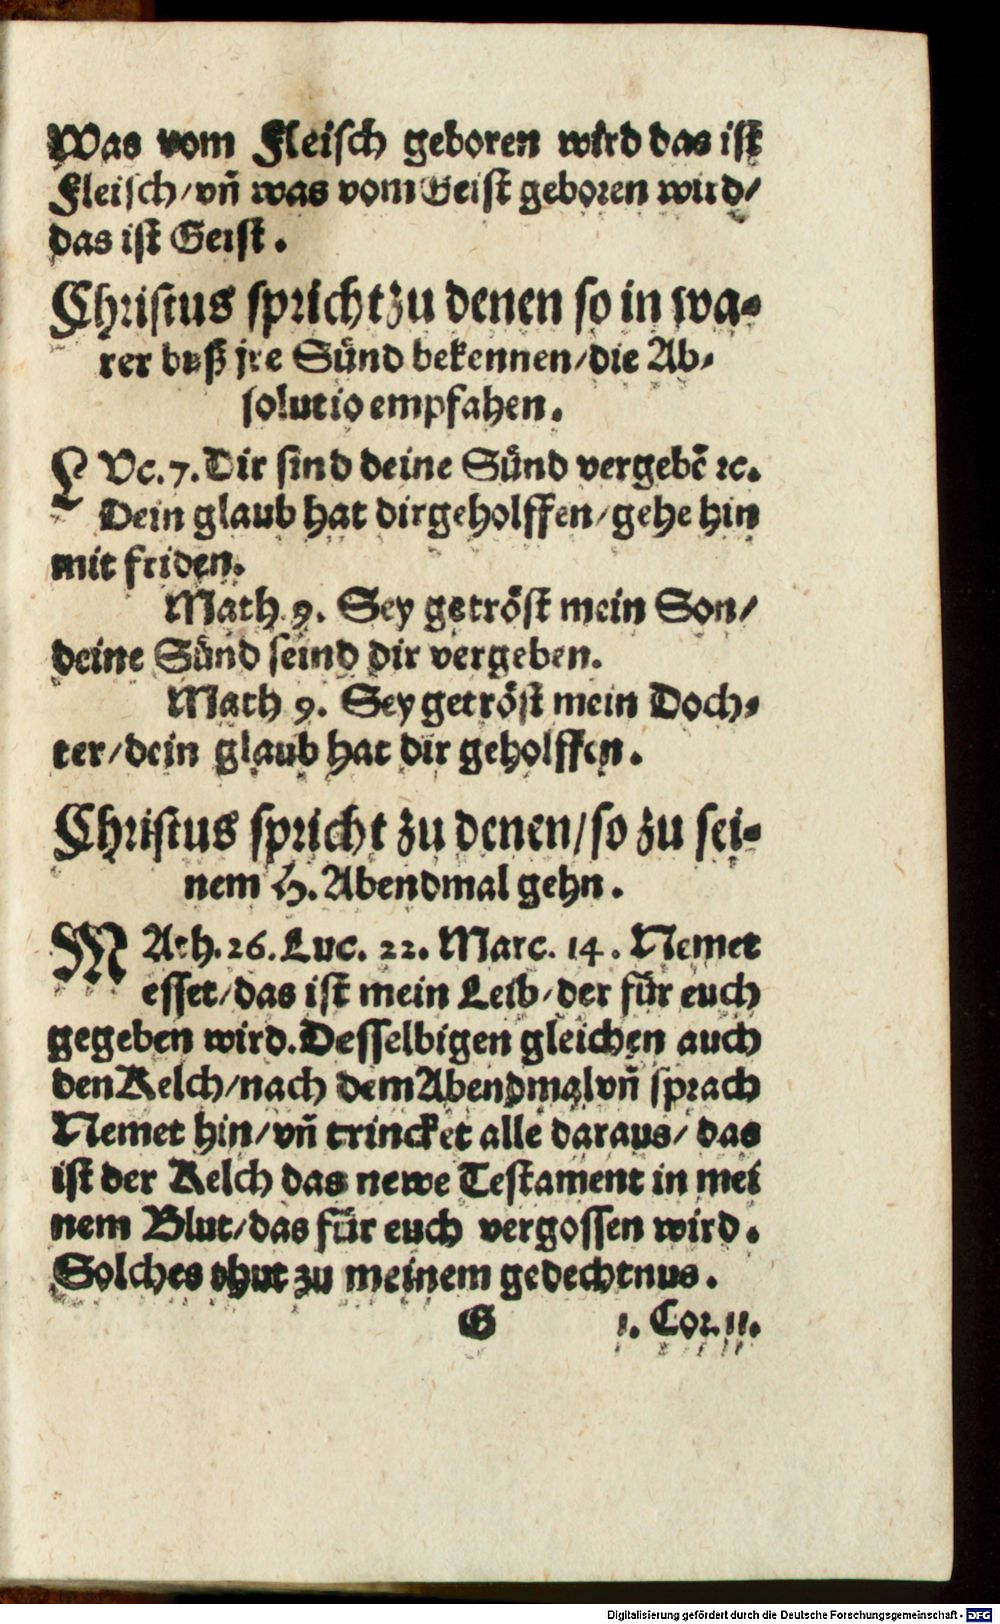 Was vom Fleisch geboren wird das ist
Fleisch/vñ was vom Geist geboren wird/
das ist Geist.
Christus spricht zu denen so in wa-
rer buß jre Sünd bekennen/die Ab-
solutio empfahen.
LVc. 7. Dir sind deine Sünd vergebẽ ꝛc.
Dein glaub hat dir geholffen/gehe hin
mit friden.
Math 9. Sey getröst mein Son/
deine Sünd seind dir vergeben.
Math 9. Sey getröst mein Doch-
ter/dein glaub hat dir geholffen.
Christus spricht zu denen/so zu sei-
nem H. Abendmal gehn.
MAth. 26. Luc. 22. Marc. 14. Nemet
esset/das ist mein Leib/der für euch
gegeben wird. Desselbigen gleichen auch
den Kelch/nach dem Abendmal vñ sprach
Nemet hin/vñ trincket alle daraus/das
ist der Kelch das newe Testament in mei
nem Blut/das für euch vergossen wird.
Solches thut zu meinem gedechtnus.
G 1. Cor. 11.
Digitalisierung gefördert durch die Deutsche Forschungsgemeinschaft - DFG